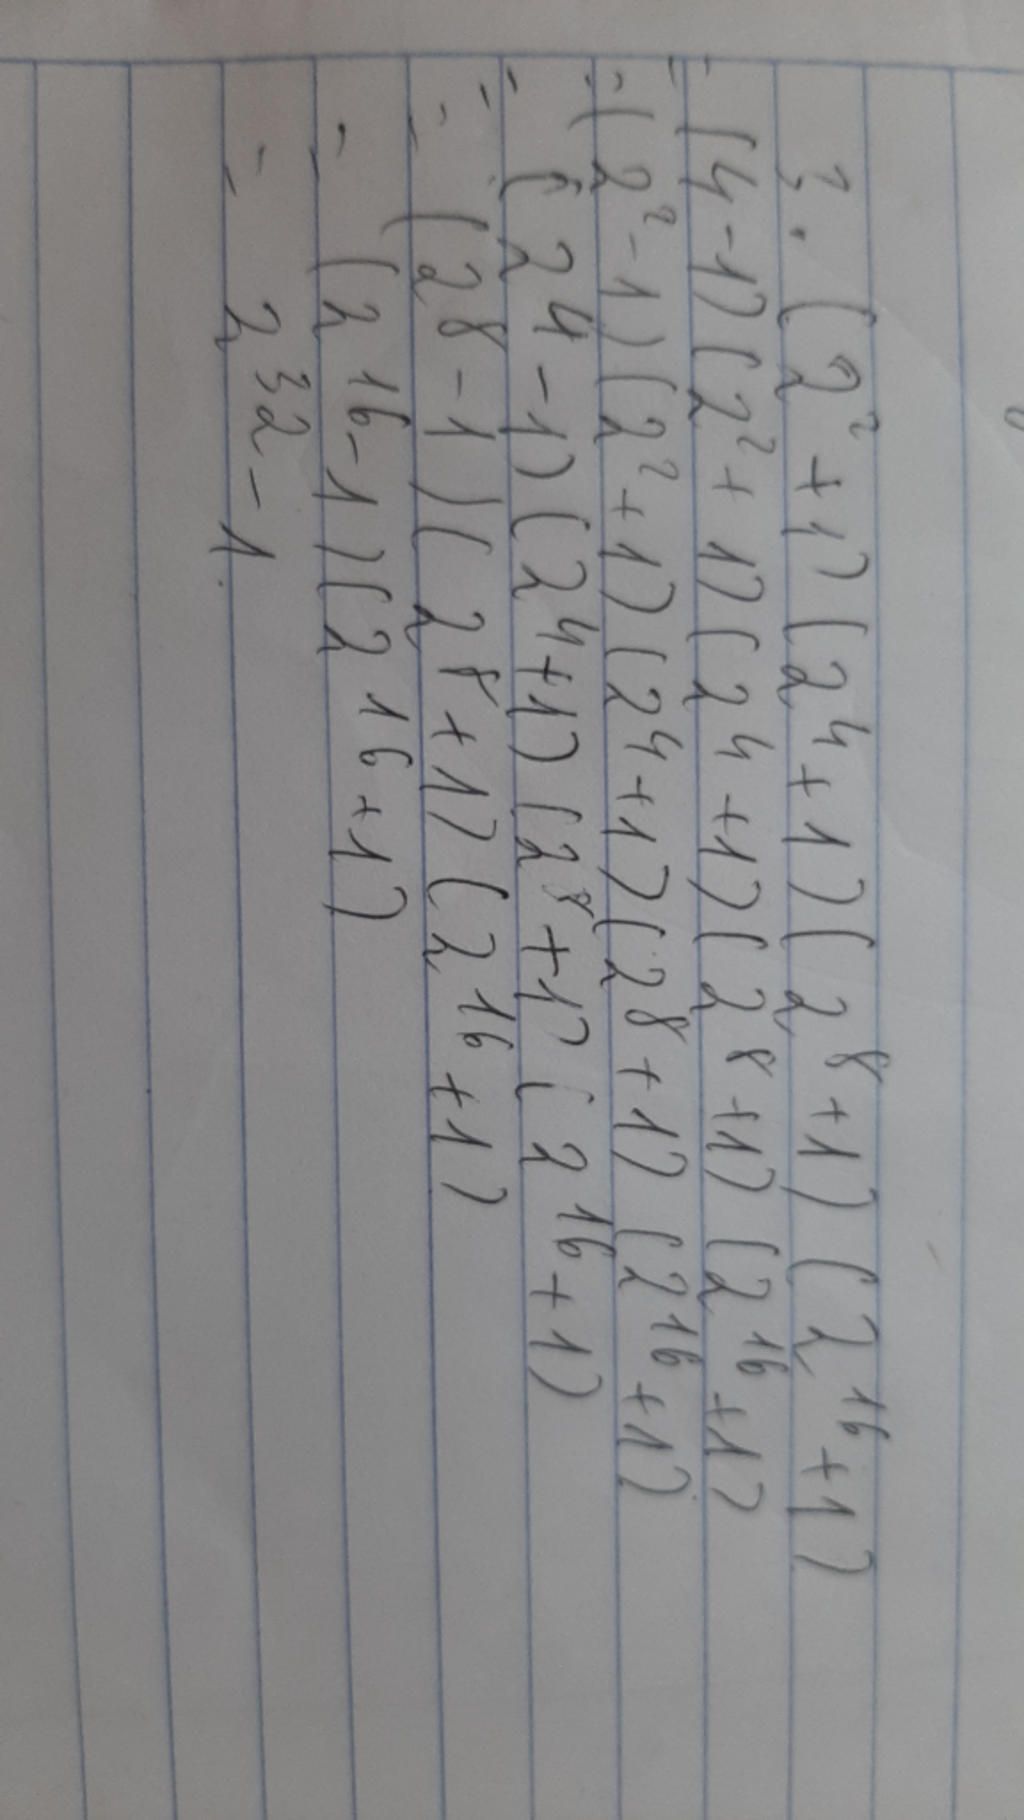 3. (2² + 1) (2⁴ + 1) (2⁸ + 1) (2¹⁶ + 1)
= (4 - 1) (2² + 1) (2⁴ + 1) (2⁸ + 1) (2¹⁶ + 1)
= (2² - 1) (2² + 1) (2⁴ + 1) (2⁸ + 1) (2¹⁶ + 1)
= (2⁴ - 1) (2⁴ + 1) (2⁸ + 1) (2¹⁶ + 1)
= (2⁸ - 1) (2⁸ + 1) (2¹⁶ + 1)
= (2¹⁶ - 1) (2¹⁶ + 1)
= 2³² - 1.